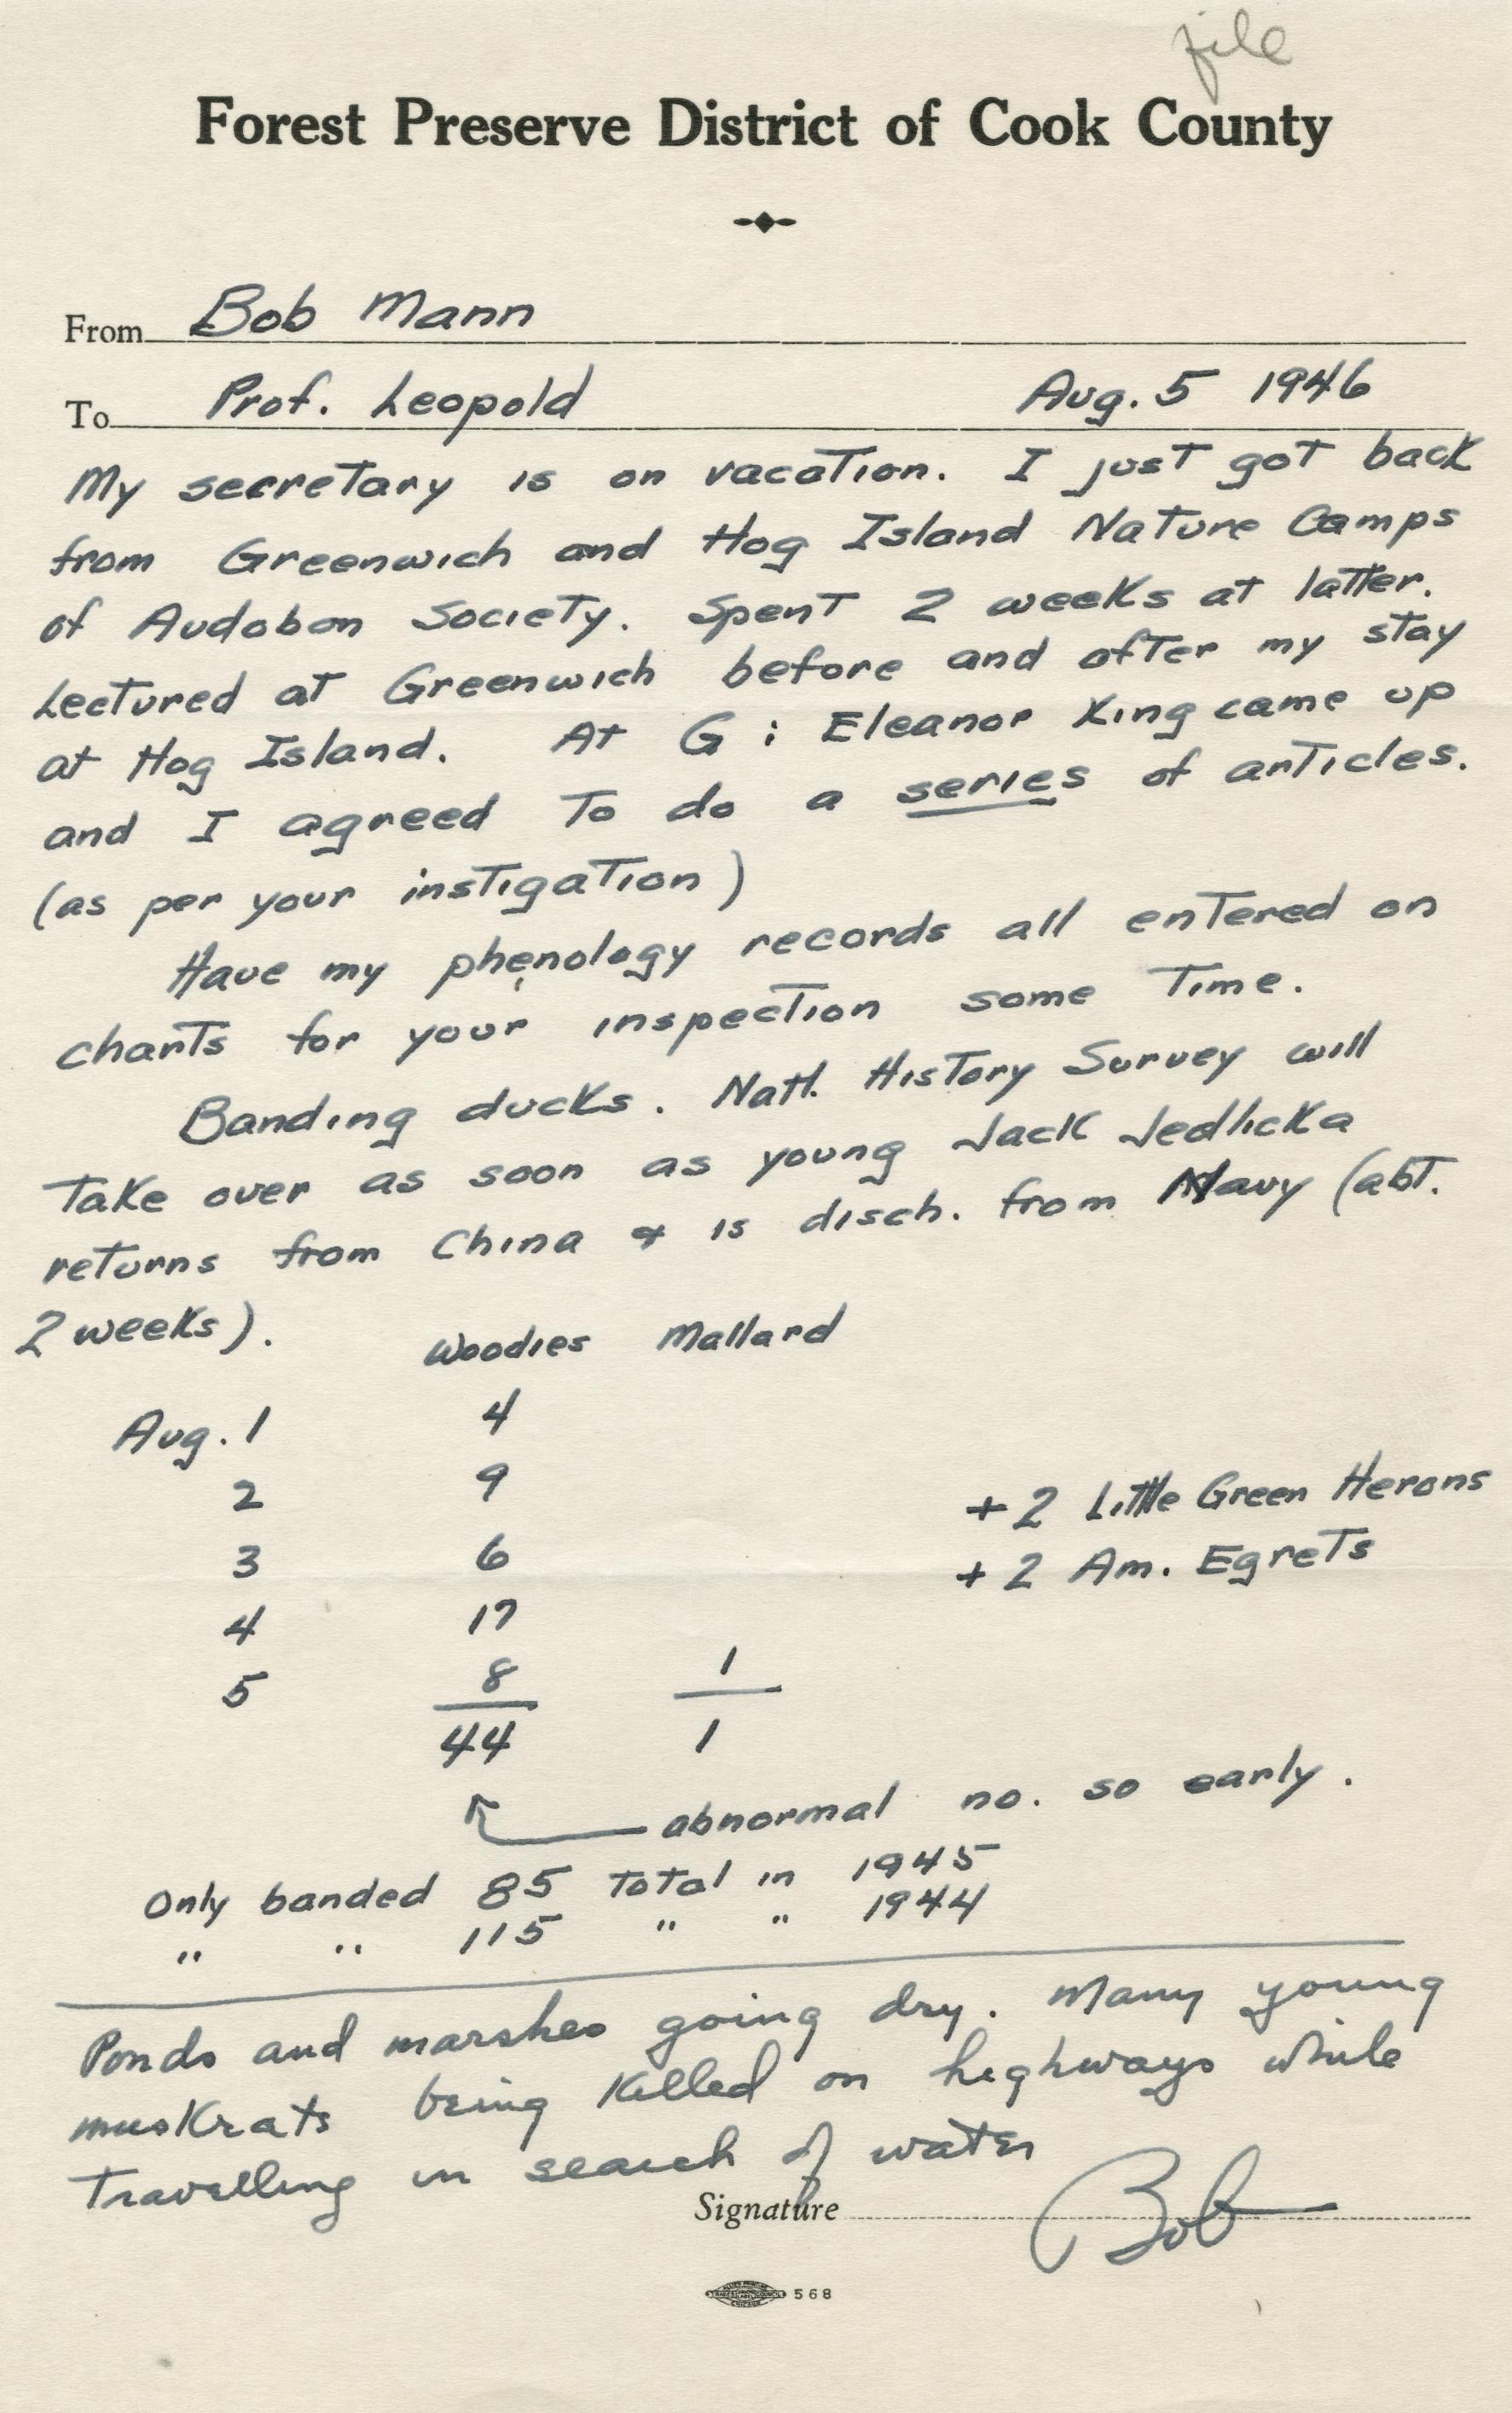 file
Forest Preserve District of Cook County
From Bob Mann
To Prof. Leopold Aug. 5 1946
My secretary is on vacation. I just got back
from Greenwich and Hog Island Nature Camps
of Audobon Society. Spent 2 weeks at latter.
Lectured at Greenwich before and after my stay
at Hog Island. At G: Eleanor King came up
and I agreed to do a series of articles.
(as per your instigation)
Have my phenology records all entered on
charts for your inspection some time.
Banding ducks. Natl. History Survey will
take over as soon as young Jack Jedlicka
returns from China & is disch. from Navy (abt.
2 weeks).
Woodies Mallard
Aug. 1 4
2 9 + 2 Little Green Herons
3 6 + 2 Am. Egrets
4 17
5 8 1
44 1
abnormal no. so early.
Only banded 85 total in 1945
" " 115 " " 1944
Ponds and marshes going dry. Many young
muskrats being killed on highways while
travelling in search of water
Signature Bob
568